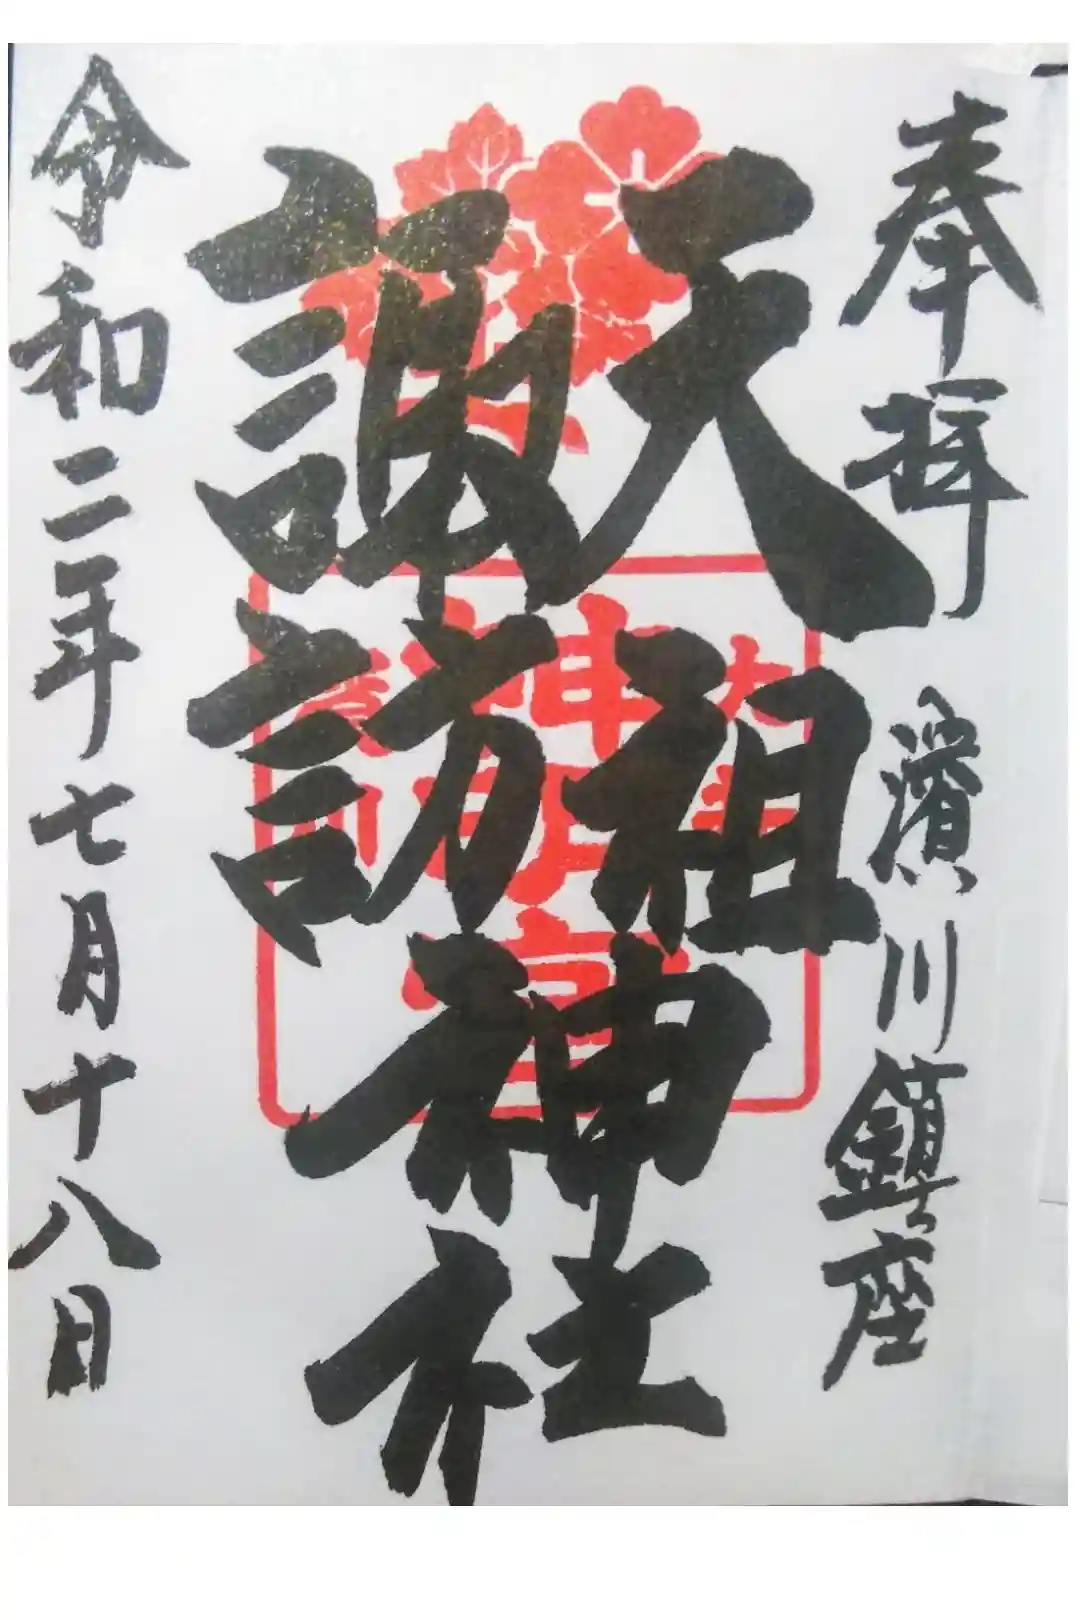 奉拝 濱川鎮座
天祖
諏訪
神社
令和二年七月十八日
神明宮